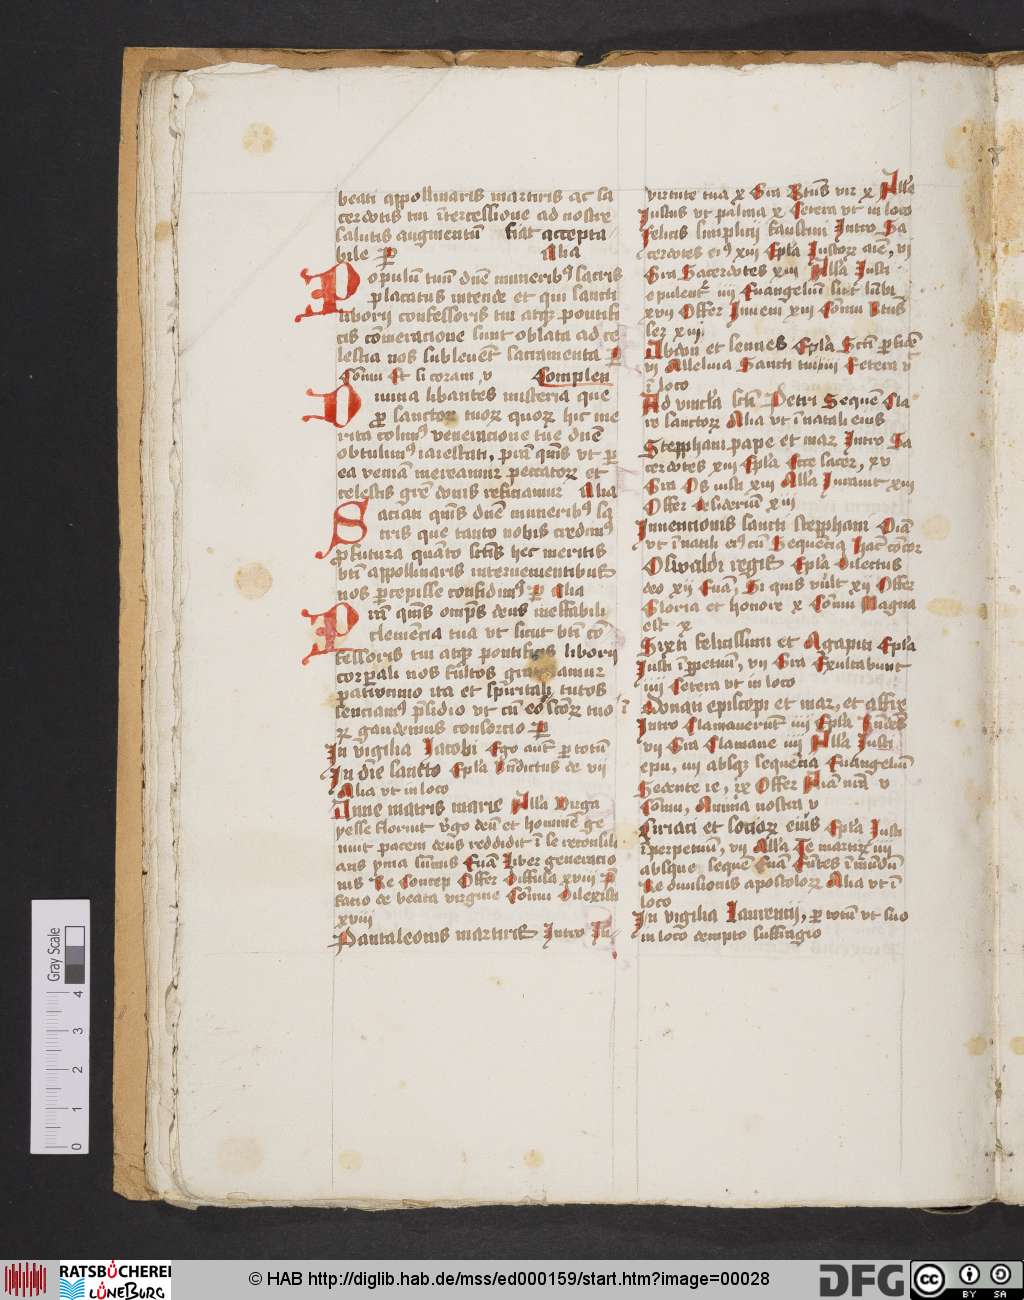 beati appollinaris martiris ac sa
cerdotis tui intercessione ad nostre
salutis augmentū fiat accepta
bile P Alia
Populum tuū dne munerib9 sacris
placatus intende et qui sancti
liborii confessoris tui atqz pontifi
cis cōmeracione sunt oblata ad ce
lestia nos sublevēt sacramenta P
Cōmu Et si coram, v Complen
Divina libantes misteria que
pro sanctorz tuorz quorz hic me
rita colim9 veneracione tue dne
obtulim9 maiestati, p̄sta qms vt per
ea veniā mereamur peccatorz et
celestis gre donis reficiamur Alia
Saciati qms dne munerib9 sa
cris que tanto nobis credim9
profutura quāto sctis hec meritis
bti appollinaris intervenientibus
nos percepisse confidim9 P Alia
Psta qms omps deus ineffabili
clemēcia tua vt sicut bti cō
fessoris tui atqz pontificis liborii
corporali nos fultos gratiamur
patrocinio ita et spiritali tutos
senciam9 p̄sidio vt cū eo sctorz tuo
rz gaudemus consorcio P
In vigilia Jacobi Ego aut per totū
In die sancto Epla Bndictus de vii
Alia vt in loco
Anne matris marie Alla Virga
yesse floruit v̄go deū et hominē ge
nuit pacem deus reddidit i se reconsili
ans yma sūmis Euā Liber generacio
nis Re Concep Offer Diffusa xviij P
facio de beata virgine Cōmu Dilexisti
xviii
Pantaleonis martiris Intro In
virtute tua x Gra Btus vir x Alla
Justus vt palma x Cetera vt in loco
Felicis simplicii faustini Intro Sa
cerdotes ei9 xiii Epla Justorz aie, vi
Gra Sacerdotes xiii Alla Justi
epulent iiii Euangeliū Sint lūbi
xvii Offer Inveni xiii Cōmu Btus
ser xiii
Abdon et sennes Epla Scti per fidē
vi Alleluia Sancti tui iiii Cetera vt
i loco
Ad vincla scti Petri Sequē Cla
re sanctorz Alia vt i natali eius
Stepphani pape et mar Intro Sa
cerdotes xiii Epla Ecce sacer, xv
Gra Os iusti xiii Alla Juravit xiii
Offer desideriū xiii
Invencionis sancti stepphani Oia
vt i natali ei9 cū Sequēcia Hac cōcor
Oswaldi regis Epla Dilectus
deo xii Euā, Si quis vult xii Offer
Gloria et honore x Cōmu Magna
est x
Sixti felicissimi et Agapiti Epla
Justi i perpetuū, vii Gra Exultabunt
iiii Cetera vt in loco
Donati episcopi et mar, et affre
Intro Clamaverūt iiii Epla Jūdēs
vii Gra Clamave iiii Alla Justi
epu, iiii absqz sequēcia Euangeliū
Sedente ie, ix Offer Aia nra v
Cōmu, Anima nostra v
Ciriaci et sociorz eius Epla Justi
i perpetuū, vii Alla Te martirz iiii
absque sequē Euā Eūtes i mūdū
Re divisionis apostolorz Alia vt i
loco
In vigilia Laurencii, per totū vt suo
in loco dempto suffragio
Gray Scale
0 1 2 3 4
RATSBÜCHEREI
LÜNEBURG
© HAB http://diglib.hab.de/mss/ed000159/start.htm?image=00028
DFG
cc BY SA